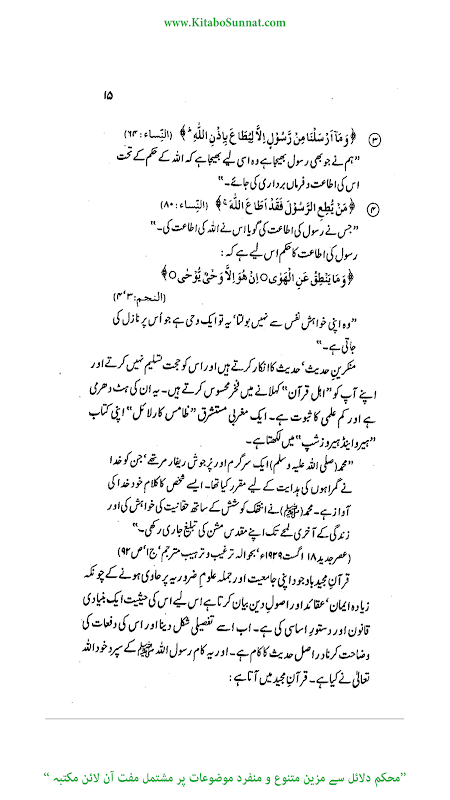 www.KitaboSunnat.com
۱۵
③ ﴿وَمَآ اَرْسَلْنَا مِنْ رَّسُوْلٍ اِلَّا لِيُطَاعَ بِاِذْنِ اللّٰهِ ط﴾ (النِّساء : ۶۴)
”ہم نے جو بھی رسول بھیجا ہے وہ اسی لیے بھیجا ہے کہ اللہ کے حکم کے تحت
اس کی اطاعت و فرماں برداری کی جائے۔“
④ ﴿مَنْ يُّطِعِ الرَّسُوْلَ فَقَدْ اَطَاعَ اللّٰهَ ج﴾ (النِّساء : ۸۰)
”جس نے رسول کی اطاعت کی گویا اس نے اللہ کی اطاعت کی۔“
رسول کی اطاعت کا حکم اس لیے ہے کہ :
﴿وَمَا يَنْطِقُ عَنِ الْهَوٰى ○ اِنْ هُوَ اِلَّا وَحْىٌ يُّوْحٰى ○﴾
(النجم:۳‘۴)
”وہ اپنی خواہش نفس سے نہیں بولتا‘ یہ تو ایک وحی ہے جو اُس پر نازل کی
جاتی ہے۔“
منکرین حدیث‘ حدیث کا انکار کرتے ہیں اور اس کو حجت تسلیم نہیں کرتے اور
اپنے آپ کو ”اہل قرآن“ کہلانے میں فخر محسوس کرتے ہیں۔ یہ ان کی ہٹ دھرمی
ہے اور کم علمی کا ثبوت ہے۔ ایک مغربی مستشرق ”طامس کارلائل“ اپنی کتاب
”ہیرو اینڈ ہیرو ورشپ“ میں لکھتا ہے۔
”محمد (صلی اللہ علیہ وسلم) ایک سرگرم اور پُرجوش ریفارمر تھے‘ جن کو خدا
نے گمراہوں کی ہدایت کے لیے مقرر کیا تھا۔ ایسے شخص کا کلام خود خدا کی
آواز ہے۔ محمد (ﷺ) نے انتھک کوشش کے ساتھ حقانیت کی خواہش کی اور
زندگی کے آخری لمحے تک اپنے مقدس مشن کی تبلیغ جاری رکھی۔“
(عصر جدید ۱۸ اگست ۱۹۲۹ء‘ بحوالہ ترغیب و ترہیب مترجم‘ ج۱‘ ص ۹۲)
قرآن مجید باوجود اپنی جامعیت اور جملہ علوم ضروریہ پر حاوی ہونے کے چونکہ
زیادہ ایمان‘ عقائد اور اصول دین بیان کرتا ہے اس لیے اس کی حیثیت ایک بنیادی
قانون اور دستورِ اساسی کی ہے۔ اب اسے تفصیلی شکل دینا اور اس کی دفعات کی
وضاحت کرنا دراصل حدیث کا کام ہے۔ اور یہ کام رسول اللہ ﷺ کے سپرد خود اللہ
تعالیٰ نے کیا ہے۔ قرآن مجید میں آتا ہے :
”محکم دلائل سے مزین متنوع و منفرد موضوعات پر مشتمل مفت آن لائن مکتبہ“